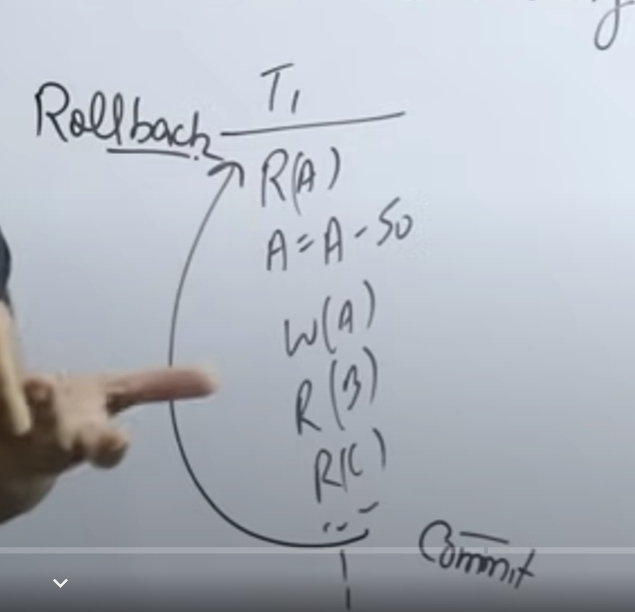 T1
Rollback
R(A)
A=A-50
W(A)
R(B)
R(C)
Commit